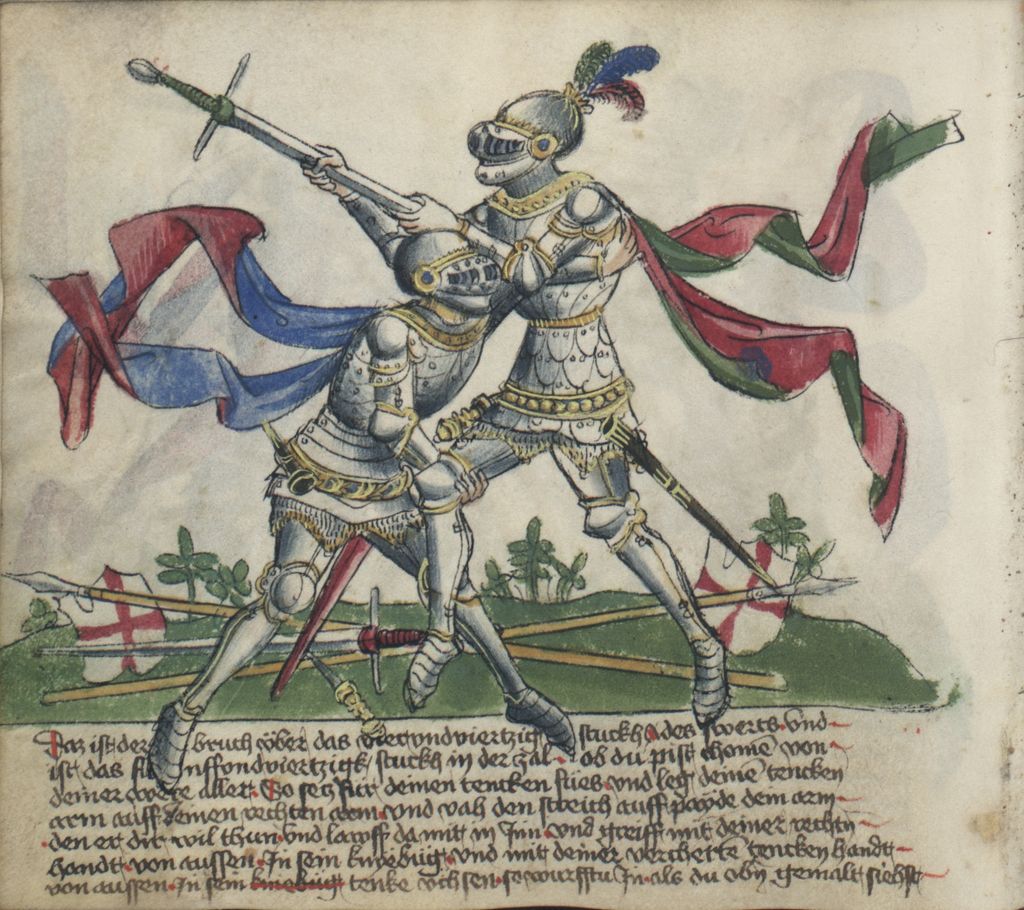 Daz ist der bruch vber das viervndviertzigk stuckh des swerts vnd
ist das funffvndviertzigk stuckh in der zal ob du pist chomē von
deiner were aller So setz für deinen tencken fues vnd leg deinē tencken
arm auff deinen rechten arm vnd vah den streich auff payde dein arm
den er dir wil thun vnd lawff da mit in Inn vnd greiff mit deiner rechtn
handt von aussen In sein kniebüg vnd mit deiner verchertē tencken handt
von aussen In sein kniebüg tenke vchsen so wurfftu In als du obn gemalt siehst